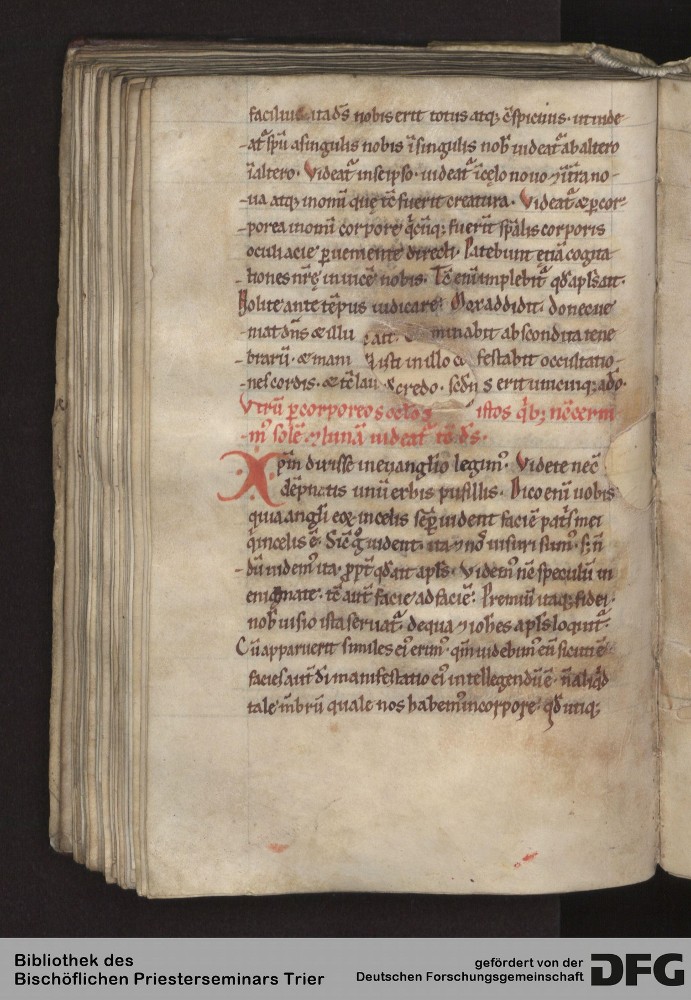 facilius ita ds̄ nobis erit totus atq; cs̄picuus. ut uide
-at᷑ spū a singulis nobis ī singulis nob᷒ uideat᷑ ab altero
ī altero. Videat᷑ in se ipso. uideat᷑ ī cęlo nouo ⁊ ī t̄ra no-
-ua atq; in om̄i quę tc̄ fuerit creatura. Videat᷑ & p̲ cor-
-porea in om̄i corpore q̄cūq; fuer̄t sp̄alis corporis
oculi acie p̲ueniente directi. Patebunt ętiā cogita
-tiones nr̄ę inuicē nobis. Tc̄ eni implebit᷑ qd̄ apls̄ ait.
Nolite ante tēpus iudicare. Mox addidit. donec ue
-niat dn̄s & illu minabit abscondita tene
-brarū. & mani festabit occultatio-
-nes cordis. & tc̄ lau s erit unicuiq; a dō.
Vtrū p̲ corporeos celos istos q̄b; nc̄ cerni
-m᷒ solē ⁊ lunā uideat᷑ tc̄ ds̄.
Xp̄m dixisse in euanglio legim᷒. Videte ne c̄
dēpnatis unū ex his pusillis. Dico eni uobis
quia angl̄i eoꝝ in celis sēp̲ uident faciē patˢ mei
q̄ in celis ē. Sic g̊ uident. ita ⁊ nos uisuri sum᷒. s; n̄
-dū uidem᷒ ita. p̲pt̄ qd̄ ait apls̄. Videm᷒ nc̄ p̲ speculū in
enigmate. tc̄ aut̄ facie ad faciē. Premiū itaq; fidei.
nob᷒ uisio ista seruat᷑. de qua ⁊ iohes apls̄ loquit᷑.
Cū apparuerit similes ei erim᷒. qm̄ uidebim᷒ eū sicuti ē.
facies aut̄ dī manifestatio ei᷒ intellegendū ē. n̄ aliq̄d
tale mēbrū quale nos habem᷒ in corpore. qd̄ utiq;
Bibliothek des
Bischöflichen Priesterseminars Trier
gefördert von der
Deutschen Forschungsgemeinschaft
DFG